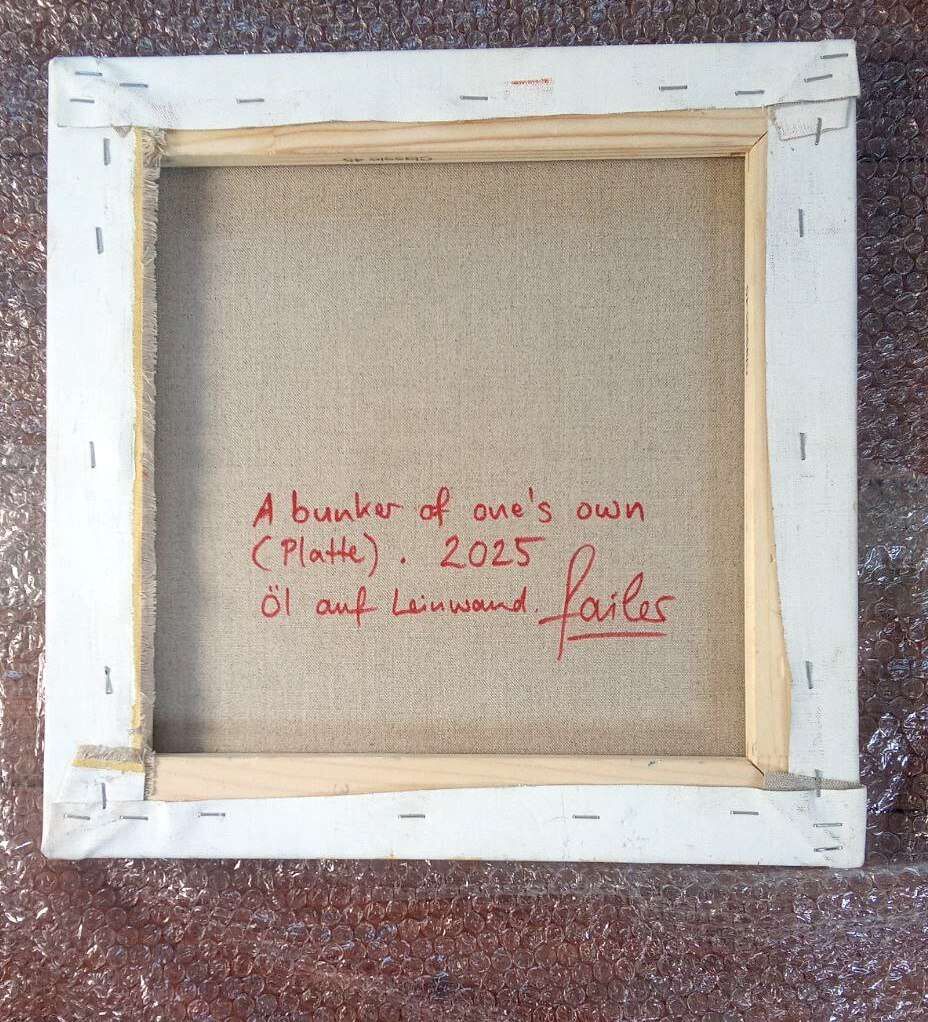 A bunker of one's own
(Platte). 2025
Öl auf Leinwand. failer